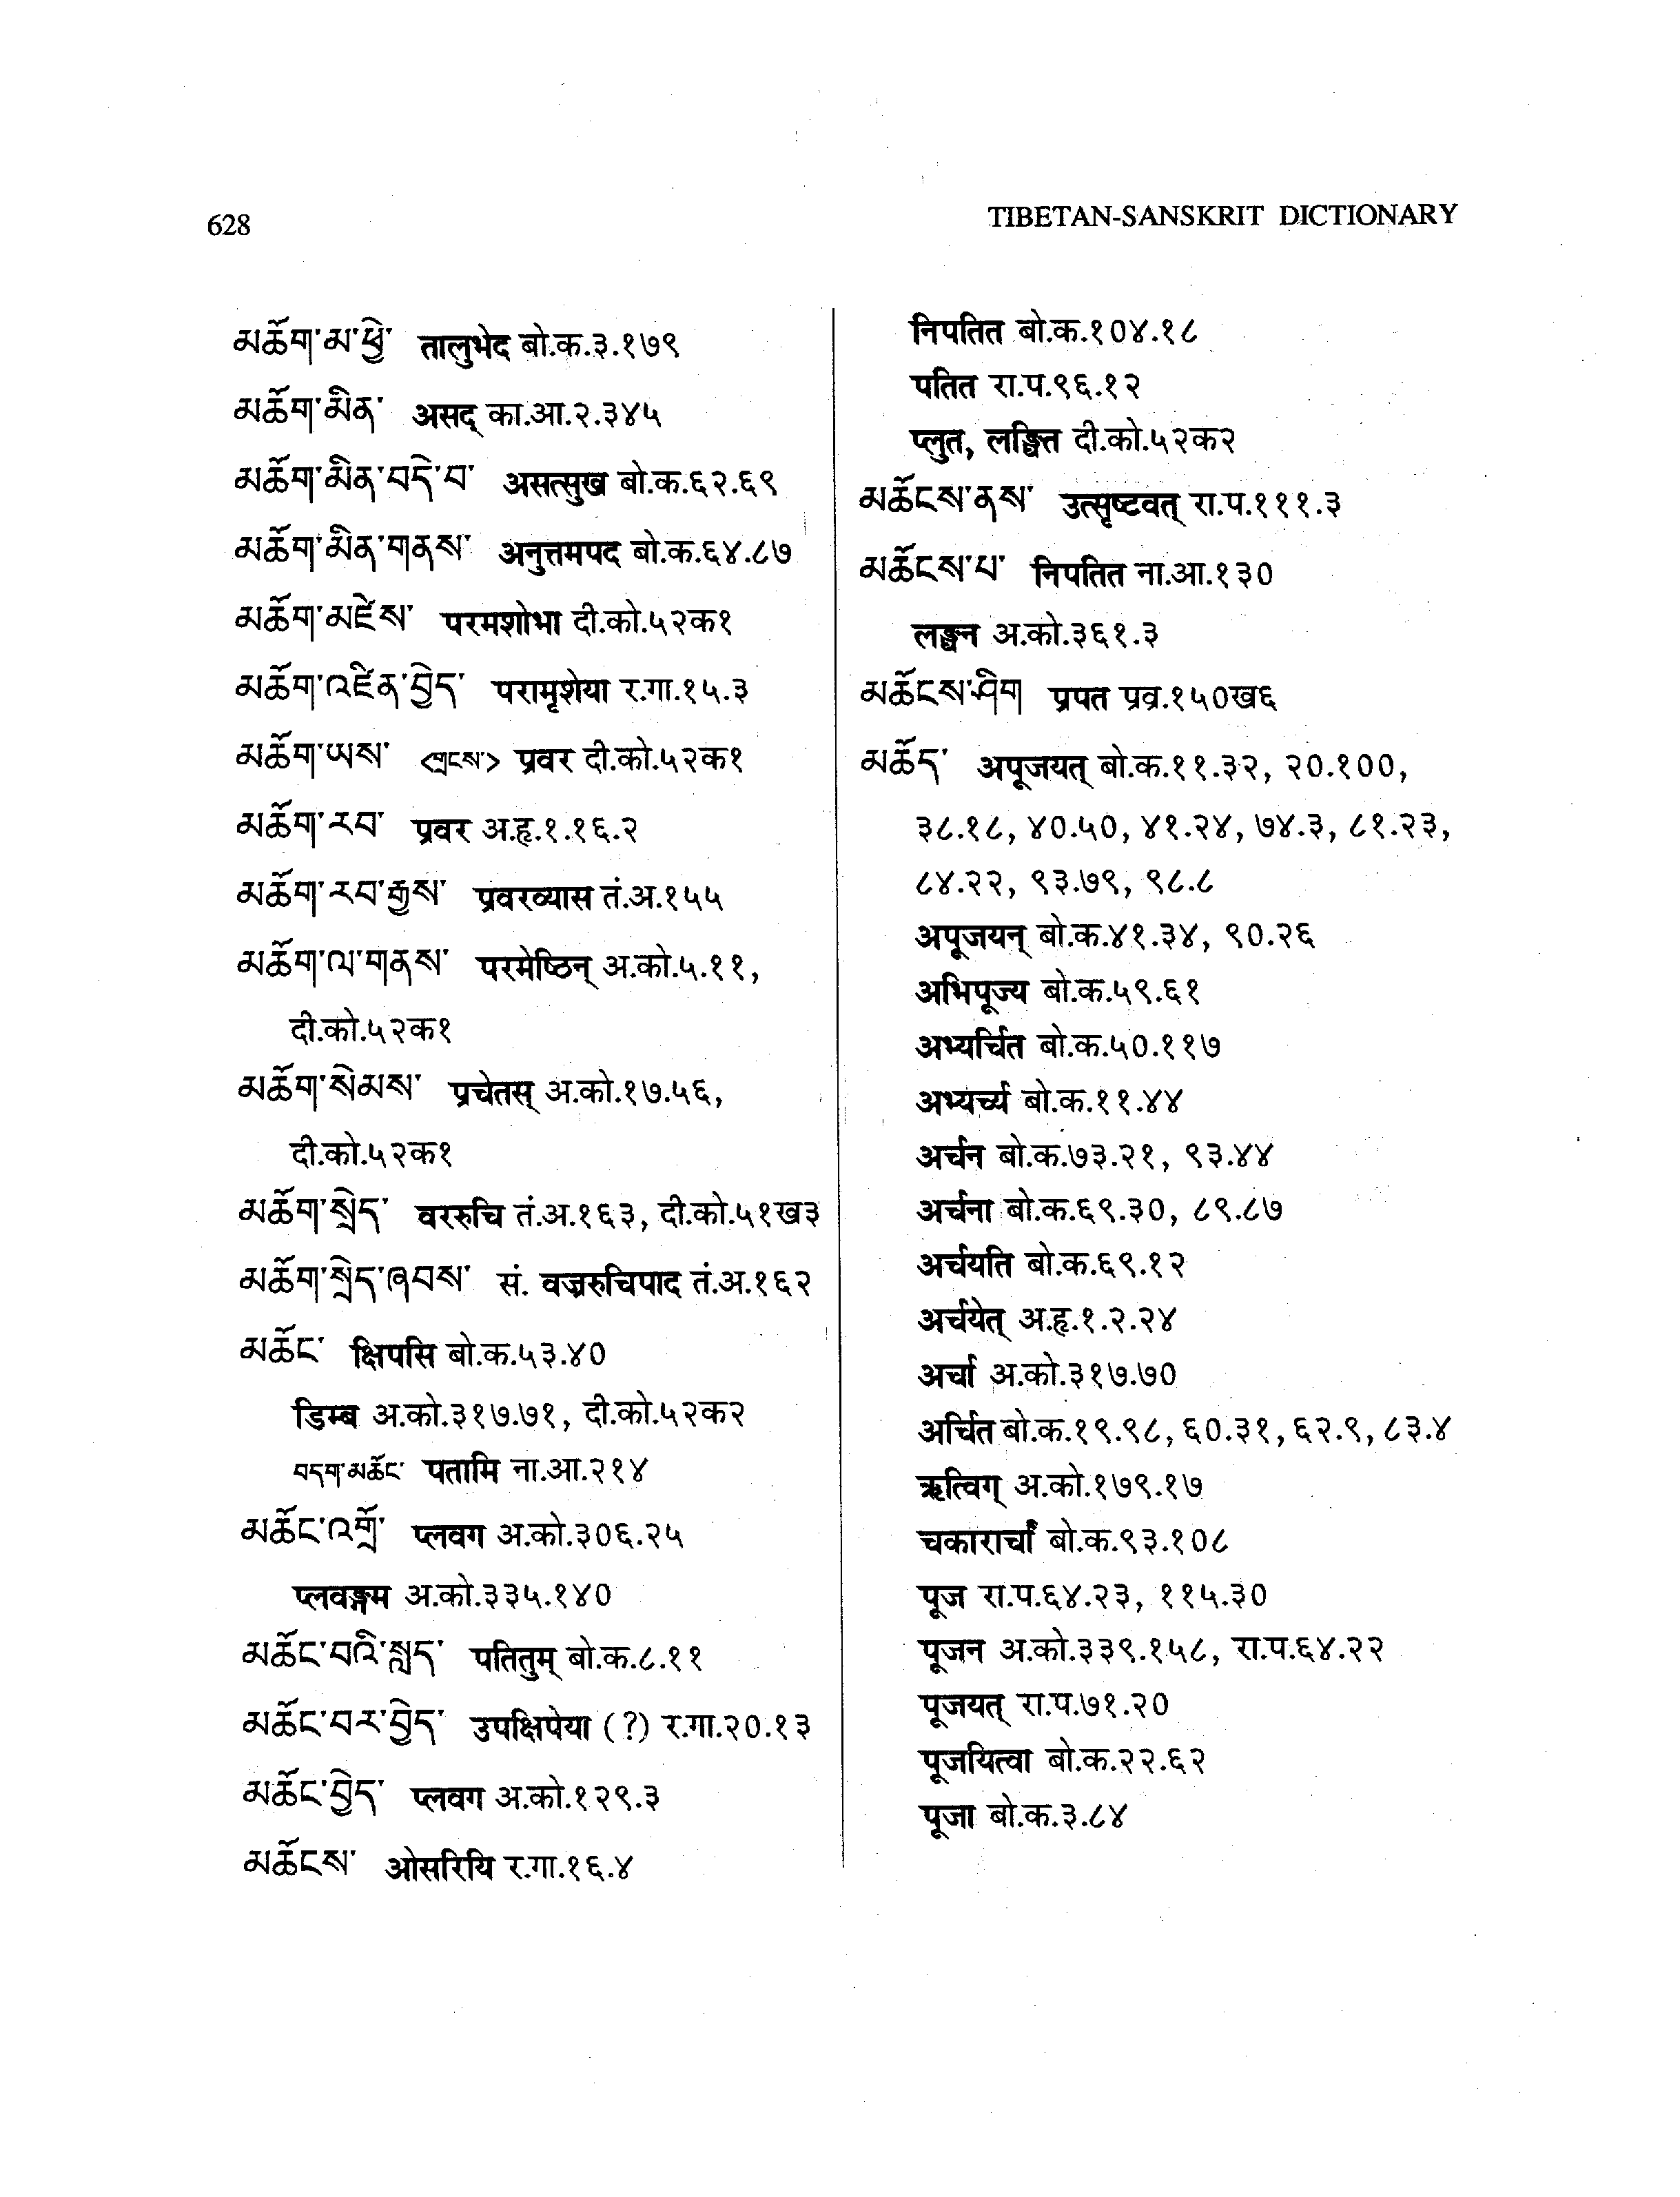 628
TIBETAN-SANSKRIT DICTIONARY
མཆོག་མ་ཕྱེ་ तालुभेद बो.क.३.१७९
མཆོག་མིན་ असद् का.आ.२.३४५
མཆོག་མིན་བདེ་བ་ असत्सुख बो.क.६२.६९
མཆོག་མིན་གནས་ अनुत्तमपद बो.क.६४.८७
མཆོག་མཛེས་ परमशोभा दी.को.५२क१
མཆོག་འཛིན་བྱེད་ परामृशेया र.गा.१५.३
མཆོག་ཡས་ <གྲངས་> प्रवर दी.को.५२क१
མཆོག་རབ་ प्रवर अ.हृ.१.१६.२
མཆོག་རབ་རྒྱས་ प्रवरव्यास तं.अ.१५५
མཆོག་ལ་གནས་ परमेष्ठिन् अ.को.५.११,
दी.को.५२क१
མཆོག་སེམས་ प्रचेतस् अ.को.१७.५६,
दी.को.५२क१
མཆོག་སྲེད་ वररुचि तं.अ.१६३, दी.को.५१ख३
མཆོག་སྲེད་ཞབས་ सं. वज्ररुचिपाद तं.अ.१६२
མཆོང་ क्षिपसि बो.क.५३.४०
डिम्ब अ.को.३१७.७१, दी.को.५२क२
བདག་མཆོང་ पतामि ना.आ.२१४
མཆོང་འགྲོ་ प्लवग अ.को.३०६.२५
प्लवङ्गम अ.को.३३५.१४०
མཆོང་བའི་སླད་ पतितुम् बो.क.८.११
མཆོང་བར་བྱེད་ उपक्षिपेया (?) र.गा.२०.१३
མཆོང་བྱེད་ प्लवग अ.को.१२९.३
མཆོངས་ ओसरियि र.गा.१६.४
निपतित बो.क.१०४.१८
पतित रा.प.९६.१२
प्लुत, लङ्घित दी.को.५२क२
མཆོངས་ནས་ उत्सृष्टवत् रा.प.१११.३
མཆོངས་པ་ निपतित ना.आ.१३०
लङ्घन अ.को.३६१.३
མཆོངས་ཤིག प्रपत प्रव्र.१५०ख६
མཆོད་ अपूजयत् बो.क.११.३२, २०.१००,
३८.१८, ४०.५०, ४१.२४, ७४.३, ८१.२३,
८४.२२, ९३.७९, ९८.८
अपूजयन् बो.क.४१.३४, ९०.२६
अभिपूज्य बो.क.५९.६१
अभ्यर्चित बो.क.५०.११७
अभ्यर्च्य बो.क.११.४४
अर्चन बो.क.७३.२१, ९३.४४
अर्चना बो.क.६९.३०, ८९.८७
अर्चयति बो.क.६९.१२
अर्चयेत् अ.हृ.१.२.२४
अर्चा अ.को.३१७.७०
अर्चित बो.क.१९.९८, ६०.३१, ६२.९, ८३.४
ऋत्विग् अ.को.१७९.१७
चकारार्चां बो.क.९३.१०८
पूज रा.प.६४.२३, ११५.३०
पूजन अ.को.३३९.१५८, रा.प.६४.२२
पूजयत् रा.प.७१.२०
पूजयित्वा बो.क.२२.६२
पूजा बो.क.३.८४